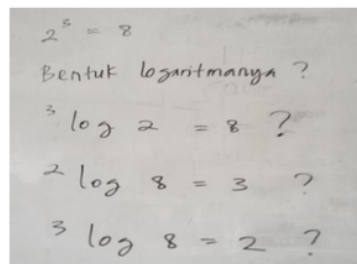 2³ = 8
Bentuk logaritmanya ?
³log 2 = 8 ?
²log 8 = 3 ?
³log 8 = 2 ?